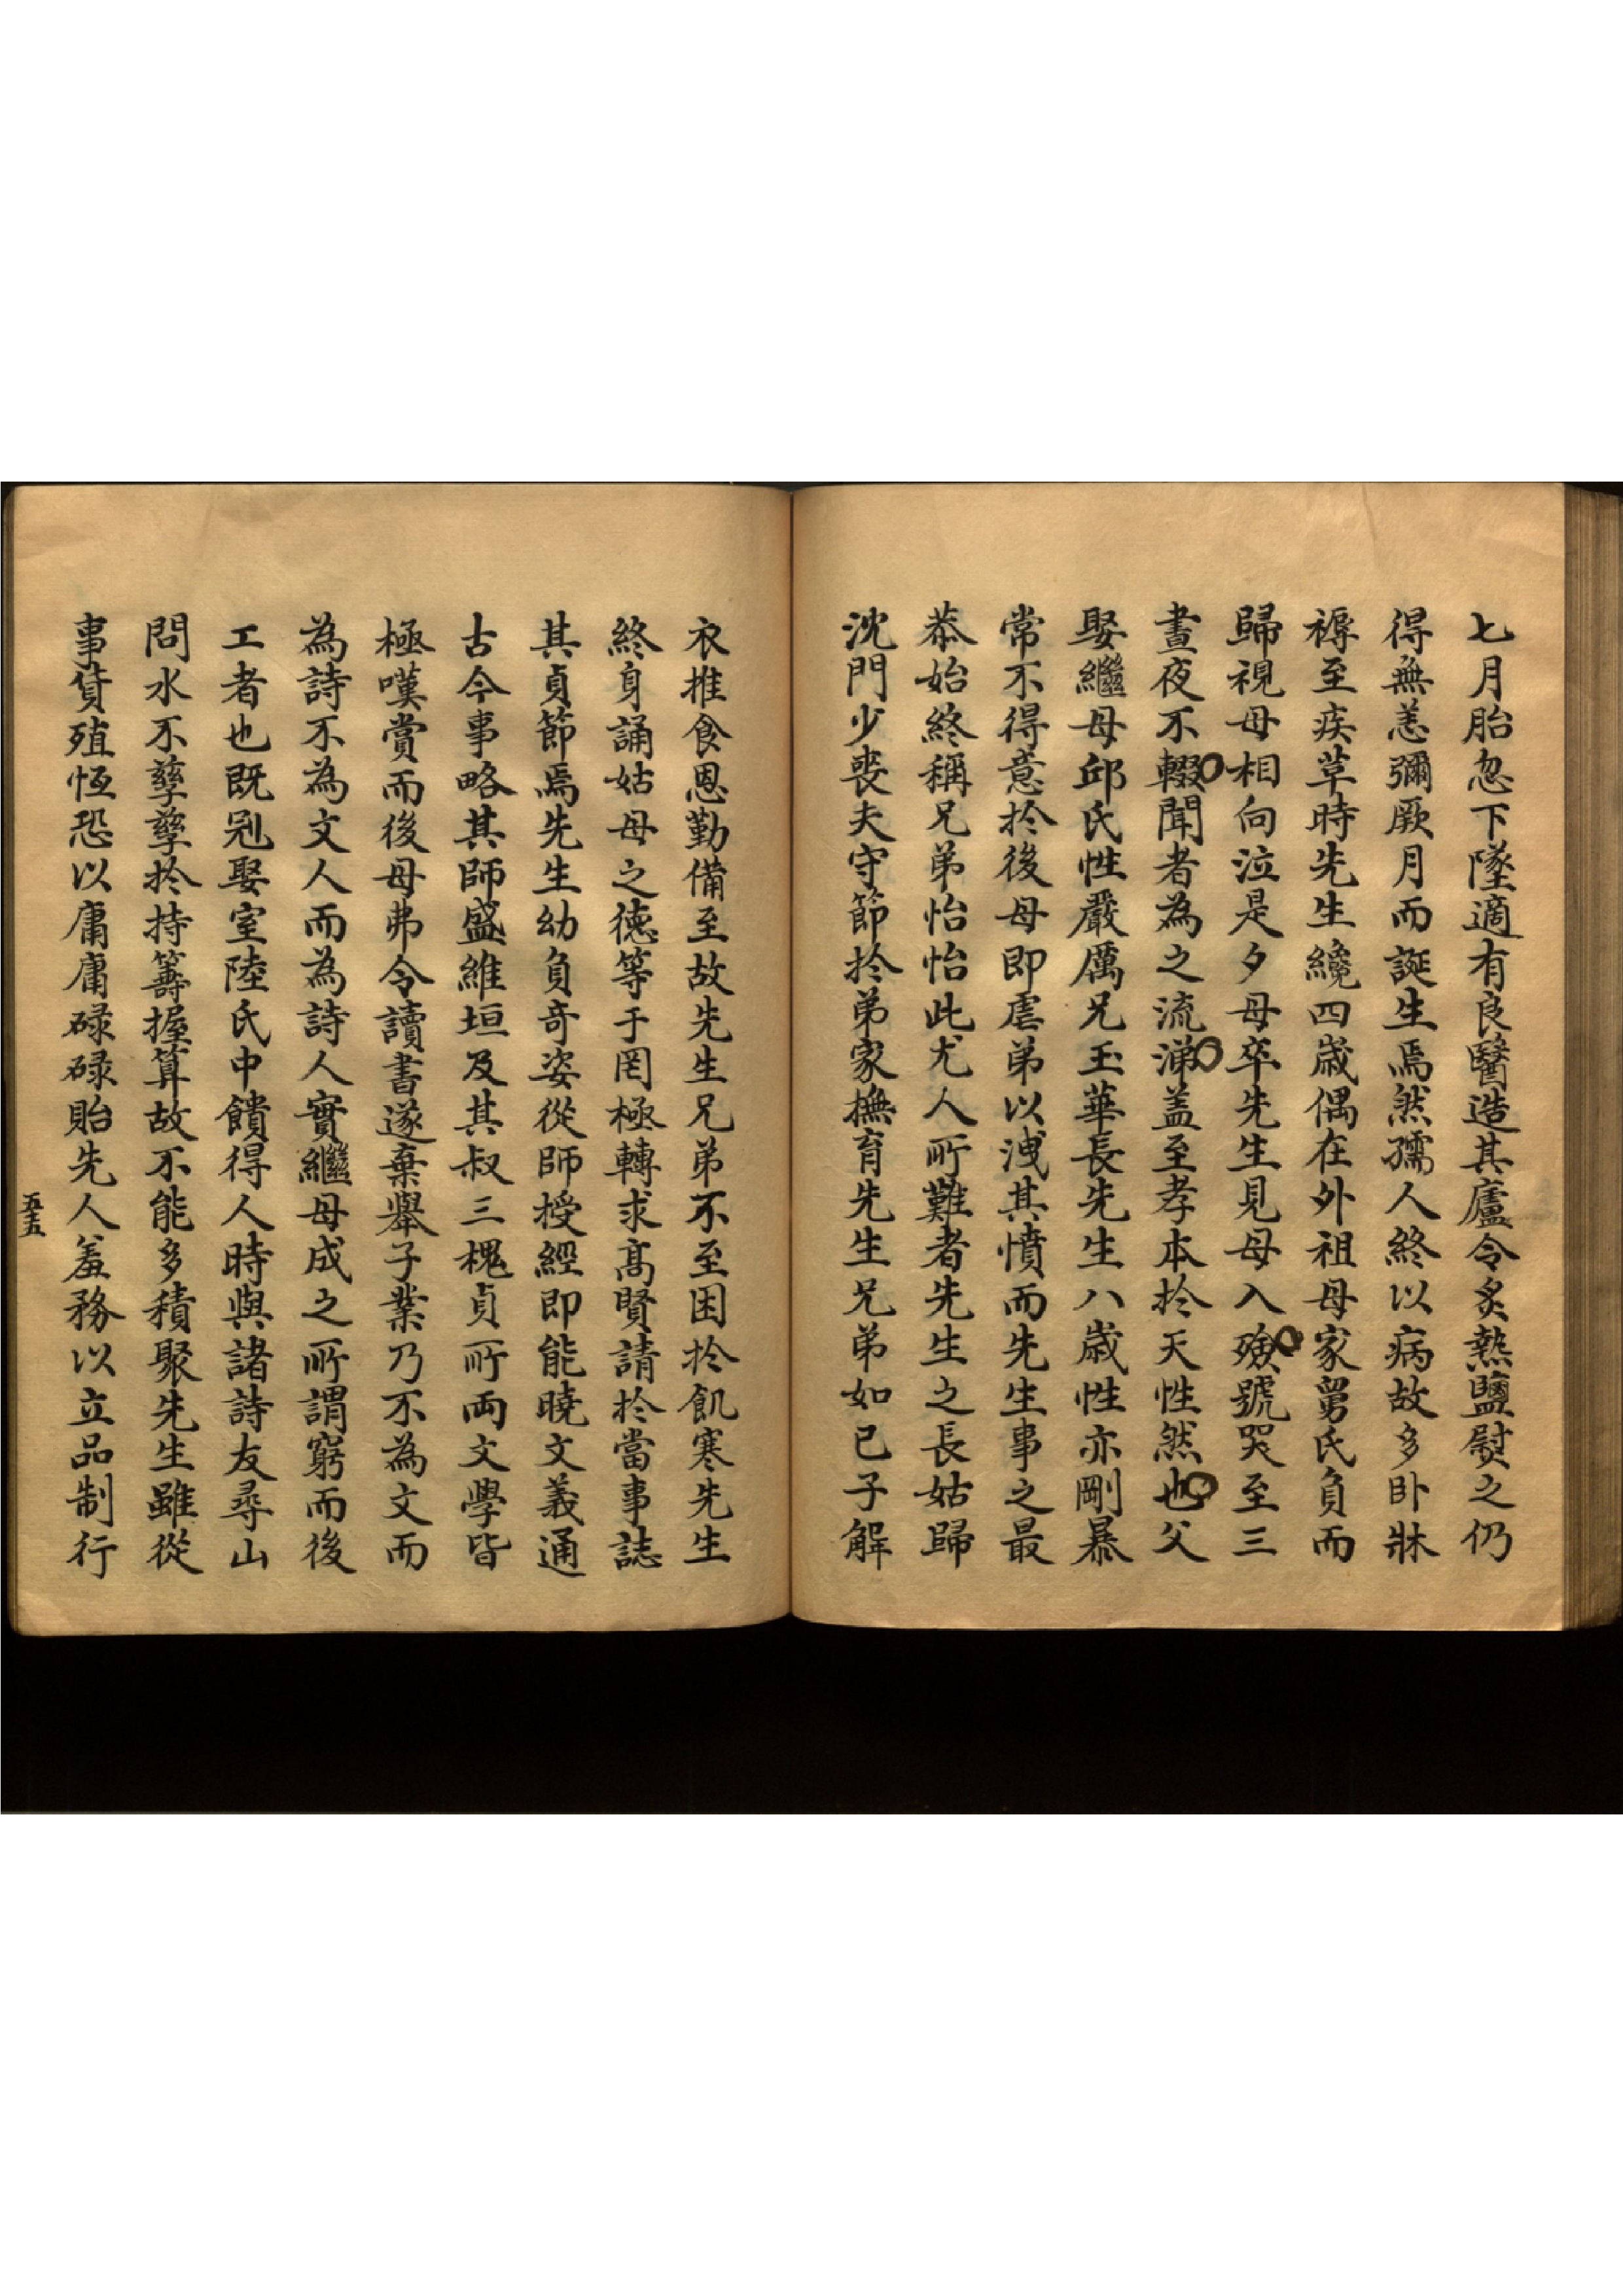 七月胎忽下墜適有良醫造其廬令炙熱鹽熨之仍
得無恙彌厥月而誕生焉然孺人終以病故多卧牀
褥至疾草時先生纔四歲偶在外祖母家舅氏負而
歸視母相向泣是夕母卒先生見母入殮號哭至三
晝夜不輟聞者為之流涕盖至孝本扵天性然也父
娶繼母邱氏性嚴厲兄玉華長先生八歲性亦剛暴
常不得意扵後母即虐弟以洩其憤而先生事之最
恭始終稱兄弟怡怡此尤人所難者先生之長姑歸
沈門少喪夫守節扵弟家撫育先生兄弟如己子解
衣推食恩勤備至故先生兄弟不至困扵飢寒先生
終身誦姑母之德等于罔極轉求高賢請扵當事誌
其貞節焉先生幼負奇姿從師授經即能曉文義通
古今事略其師盛維垣及其叔三槐貞所両文學皆
極嘆賞而後母弗令讀書遂棄舉子業乃不為文而
為詩不為文人而為詩人實繼母成之所謂窮而後
工者也既冠娶室陸氏中饋得人時與諸詩友尋山
問水不孳孳扵持籌握算故不能多積聚先生雖從
事貨殖恆恐以庸庸碌碌貽先人羞務以立品制行
五十五